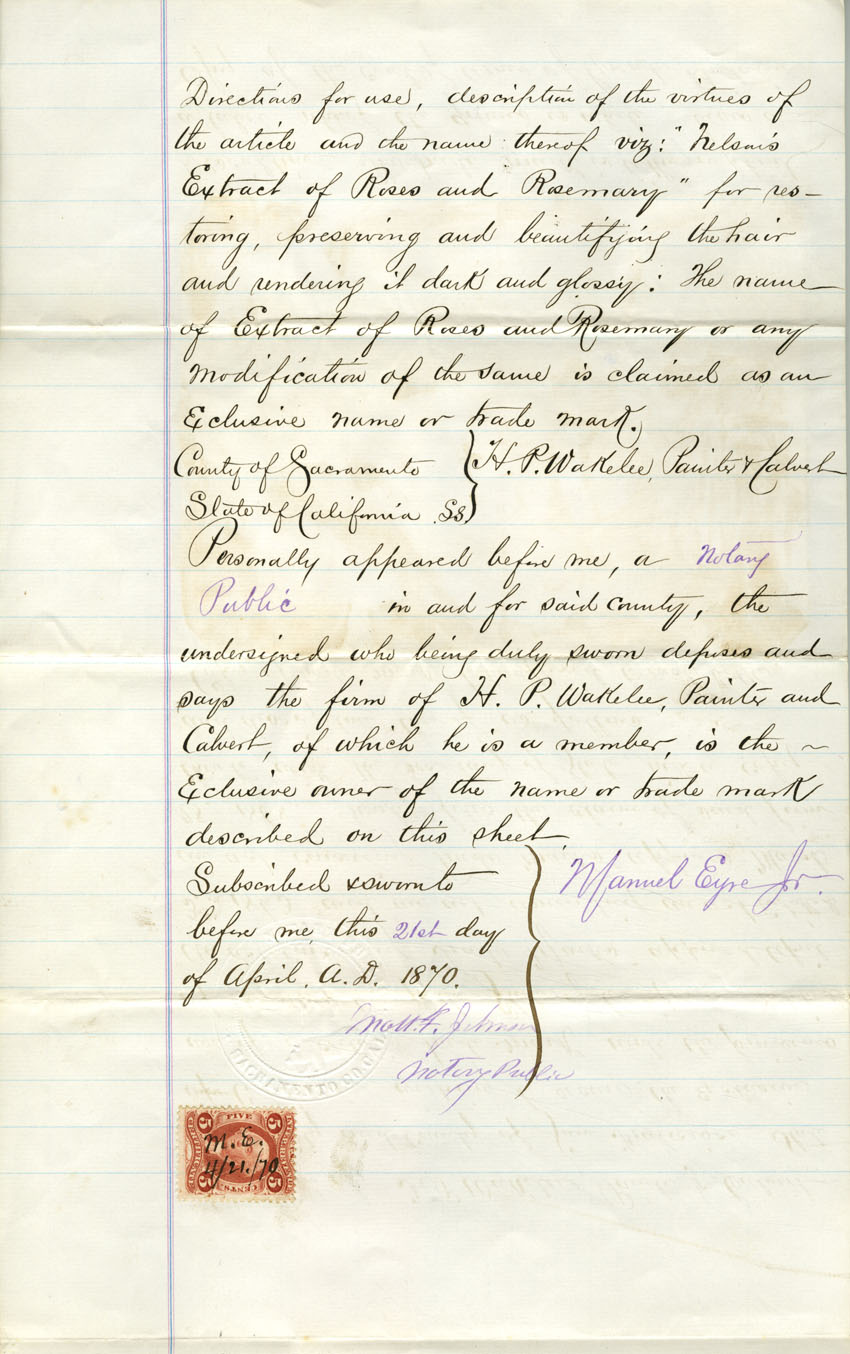 Directions for use, description of the virtues of
the article and the name thereof viz: "Nelson's
Extract of Roses and Rosemary" for res-
toring, preserving and beautifying the hair
and rendering it dark and glossy: The name
of Extract of Roses and Rosemary or any
modification of the same is claimed as an
Exclusive name or trade mark.
County of Sacramento
State of California SS.
H. P. Wakelee, Painter & Calvert
Personally appeared before me, a Notary
Public in and for said county, the
undersigned who being duly sworn deposes and
says the firm of H. P. Wakelee, Painter and
Calvert, of which he is a member, is the ~
Exclusive owner of the name or trade mark
described on this sheet.
Subscribed & sworn to
before me this 21st day
of April. A.D. 1870.
Manuel Eyre Jr.
Johnson
Notary Public
SACRAMENTO CO.
FIVE
5 5
M.E.
4/21/70
5 CENTS 5